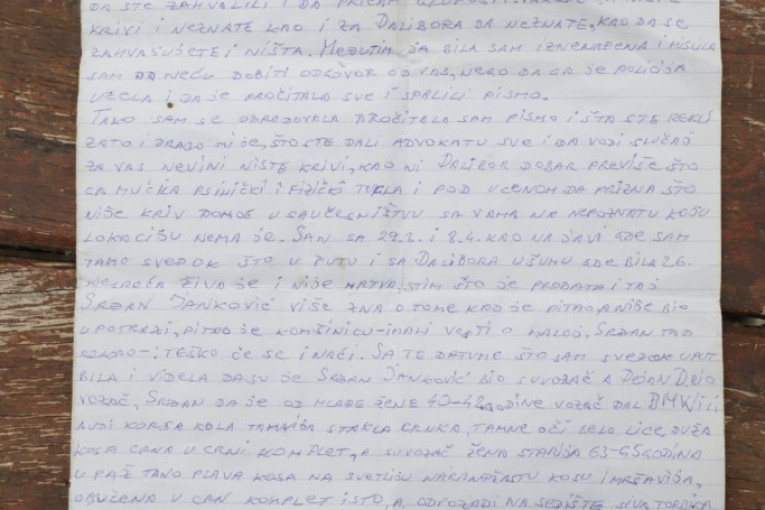 DA STE ZAHVALILI I DA PRIČAM GLUPOSTI.
KRIVI I NEZNATE KAO I ZA DALIBORA DA NEZNATE, KAO DA SE
ZAHVAŠUĆETE I NIŠTA. MEĐUTIM DA BILA SAM IZNENAĐENA I MISLILA
SAM DA NEĆU DOBITI ODGOVOR OD VAS, NEGO DA GA JE POLICIJA
UZELA I DA JE PROČITALA SVE I SPALILI PISMO.
TAKO SAM SE OBRADOVALA PROČITALA SAM PISMO I ŠTA STE REKLI
ZATO I DRAGO MI JE, ŠTO STE DALI ADVOKATU SVE I DA VODI SLUČAJ
ZA VAS NEVINI NISTE KRIVI, KAO NI DALIBOR DOBAR PREVIŠE ŠTO
GA MUČKA PSIHIČKI I FIZIČKI TUKLA I POD UCENOM DA PRIZNA ŠTO
NIJE KRIV DONOS U SAUČESNIŠTVU SA VAMA NA NEPOZNATU KOJU
LOKACIJU NEMA JE. SAN SA 29.2. I 8.4. KAO NA JAVI GDE SAM
TAMO SVEDOK ŠTO U PUTU I SA DALIBORA U ŠUMU GDE BILA 26.
ŽIVA JE I NIJE MRTVA, STIM ŠTO JE PRODATA I TAJ
SRĐAN JANKOVIĆ VIŠE ZNA O TOME KAD JE PITAO, A NIJE BIO
U POTRAZI, PITAO JE KOMŠINICU-IMALI VESTI O MALOJ. SRĐAN TAD
REKAO-: TEŠKO ĆE SE I NAĆI. SA TE DATUME ŠTO SAM SVEDOK UPUT
BILA I VIDELA DA SU JE SRĐAN JANKOVIĆ BIO SUVOZAČ A DEJAN
VOZAČ, SRĐAN DA JE OD MLAĐE ŽENE 40-42 GODINE VOZAČ DAL BMW ILI
AUDI KORSA KOLA TAMNIJA STAKLA CRNKA, TAMNE OČI BELO LICE, DUŽA
KOSA CRNA U CRNI KOMPLET, A SUVOZAČ ŽENA STARIJA 63-65 GODINA
U PAŽ TAMO PLAVA KOSA NA SVETLIJU NARANDŽASTU KOSU I MRŠAVIJA,
OBUČENA U CRN KOMPLET ISTO, A ODPOZADI NA SEDIŠTE SIVA TORBICA